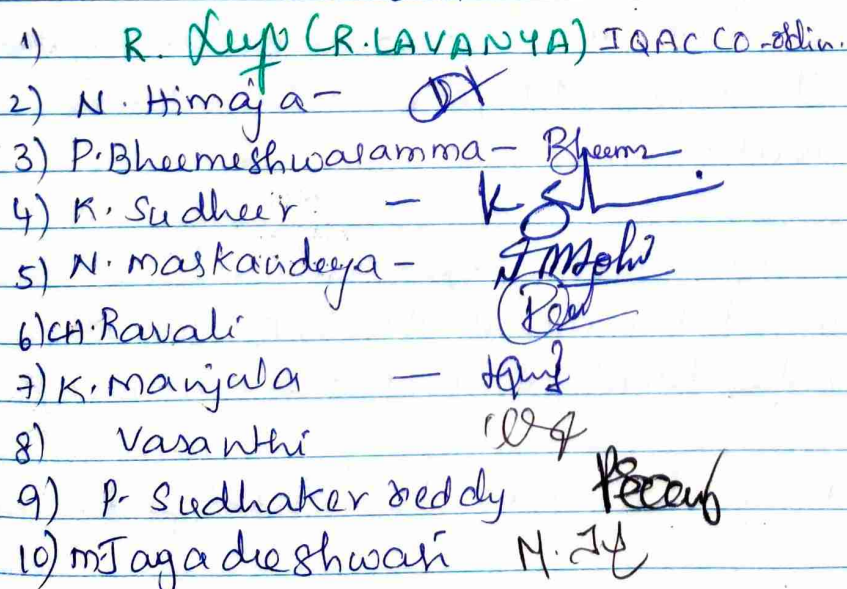 1) R. (R.LAVANYA) IQAC CO-ordin.
2) N. Himaja -
3) P. Bheemeshwaramma - Bheem
4) K. Sudheer - K
5) N. Maskandeya -
6) CH. Ravali
7) K. Manjula -
8) Vasanthi
9) P. Sudhaker reddy
10) M Jagadeeshwari M.